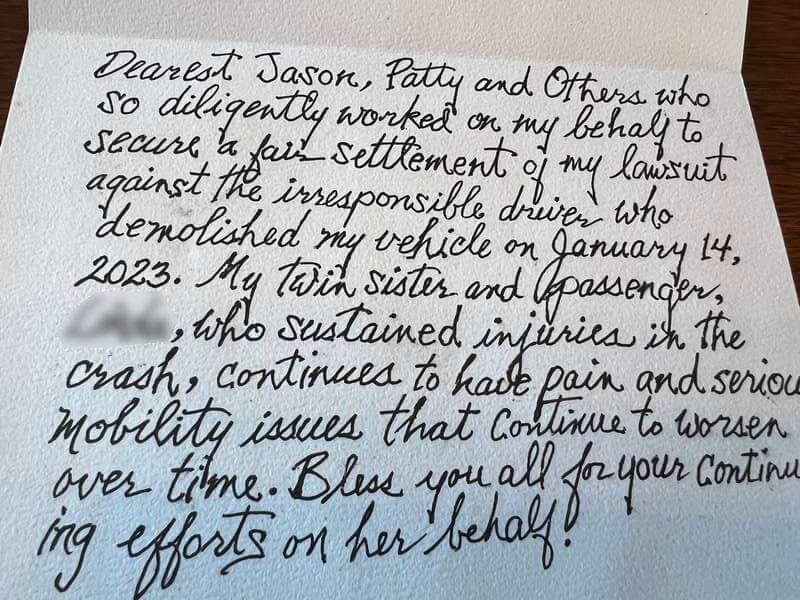 Dearest Jason, Patty and Others who
so diligently worked on my behalf to
secure a fair settlement of my lawsuit
against the irresponsible driver who
demolished my vehicle on January 14,
2023. My twin sister and passenger,
, who sustained injuries in the
crash, continues to have pain and seriou
mobility issues that continue to worsen
over time. Bless you all for your Continu
ing efforts on her behalf!